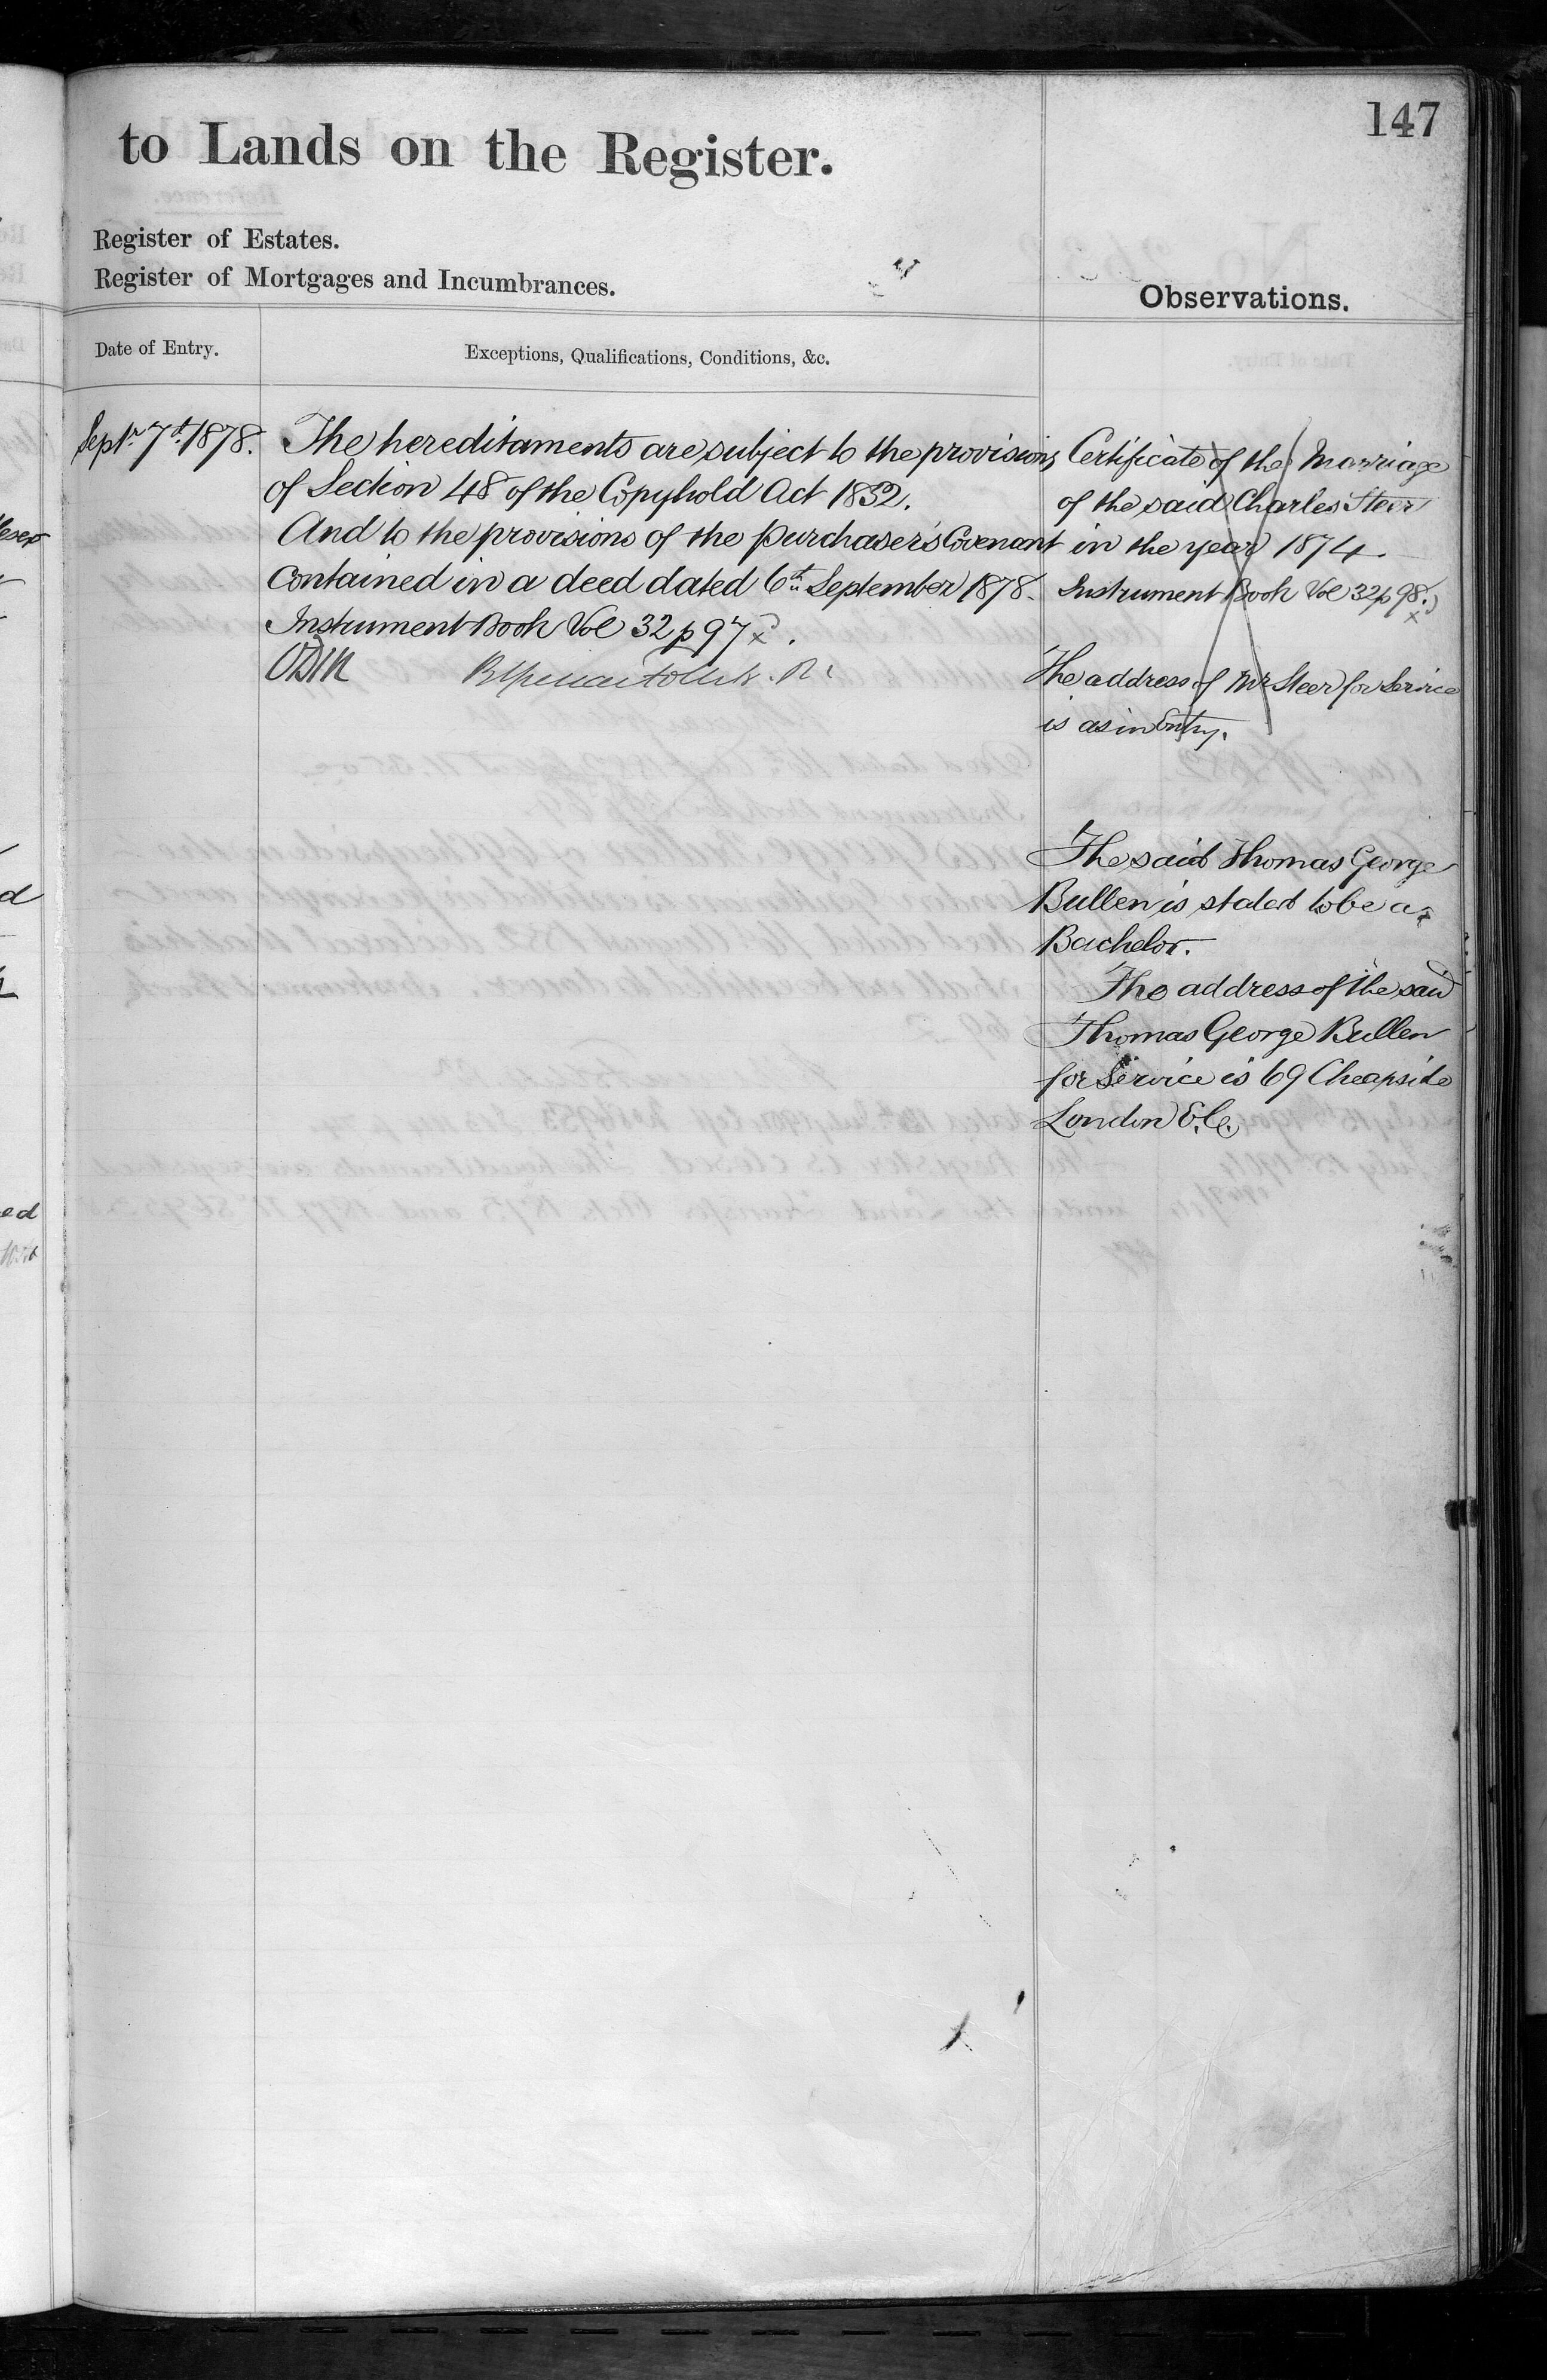 147
to Lands on the Register.
Register of Estates.
Register of Mortgages and Incumbrances.
Observations.
Date of Entry.
Exceptions, Qualifications, Conditions, &c.
Septr 7th 1878.
The hereditaments are subject to the provisions
of Section 48 of the Copyhold Act 1852.
And to the provisions of the purchaser's Covenant
contained in a deed dated 6th September 1878.
Instrument Book Vol 32 p 97
Certificate of the Marriage
of the said Charles Steer
in the year 1874.
Instrument Book Vol 32 p 98.
The address of Mr Steer for Service
is as in Entry.
The said Thomas George
Bullen is stated to be a
Bachelor.
The address of the said
Thomas George Bullen
for Service is 69 Cheapside
London E.C.